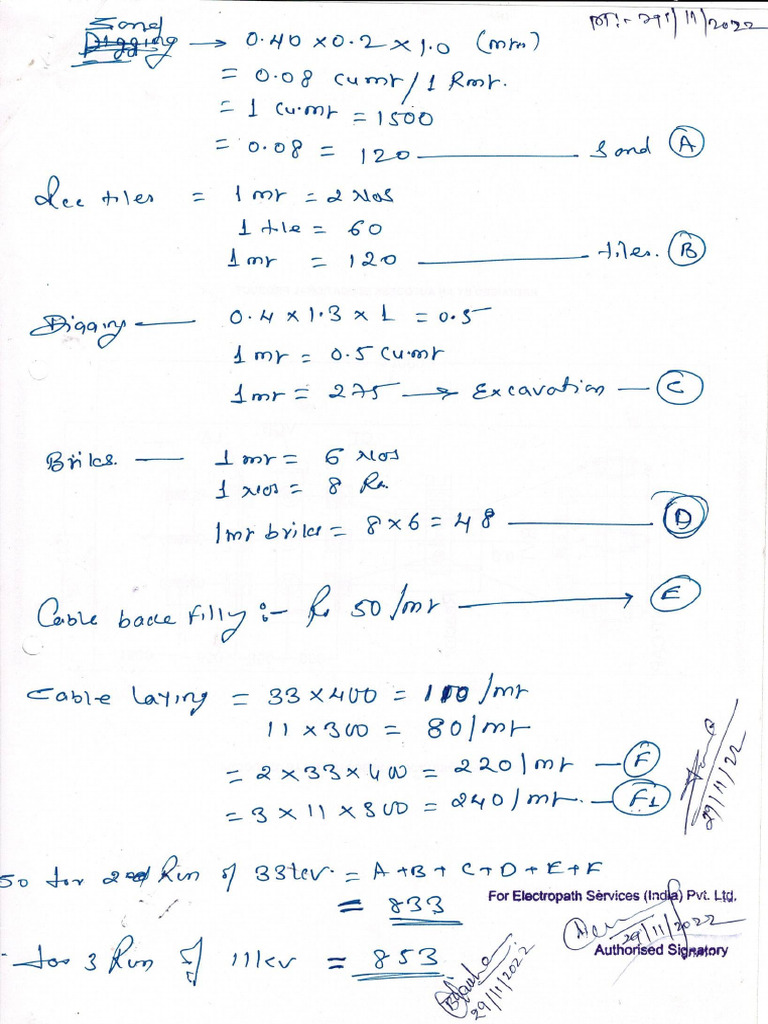 Dt:- 29/11/2022
Sand
Digging → 0.40 x 0.2 x 1.0 (mm)
= 0.08 cumt / 1 Rmt.
= 1 cu.mt = 1500
= 0.08 = 120 — Sand (A)
Rcc tiles = 1 mt = 2 Nos
1 tile = 60
1 mt = 120 — tiles. (B)
Digging — 0.4 x 1.3 x 1 = 0.5
1 mt = 0.5 cu.mt
1 mt = 275 → Excavation — (C)
Briks. — 1 mt = 6 Nos
1 Nos = 8 Rs.
1mt briks = 8 x 6 = 48 — (D)
Cable back filly :- Rs 50/mt → (E)
Cable laying = 33 x 400 = 110/mt
11 x 300 = 80/mt
= 2 x 33 x 400 = 220/mt — (F)
= 3 x 11 x 300 = 240/mt. — (F1)
29/11/22
So for 2 Run of 33kv. = A+B+C+D+E+F
= 833
For Electropath Services (India) Pvt. Ltd.
29/11/2022
Authorised Signatory
for 3 Run of 11kv = 853
29/11/2022